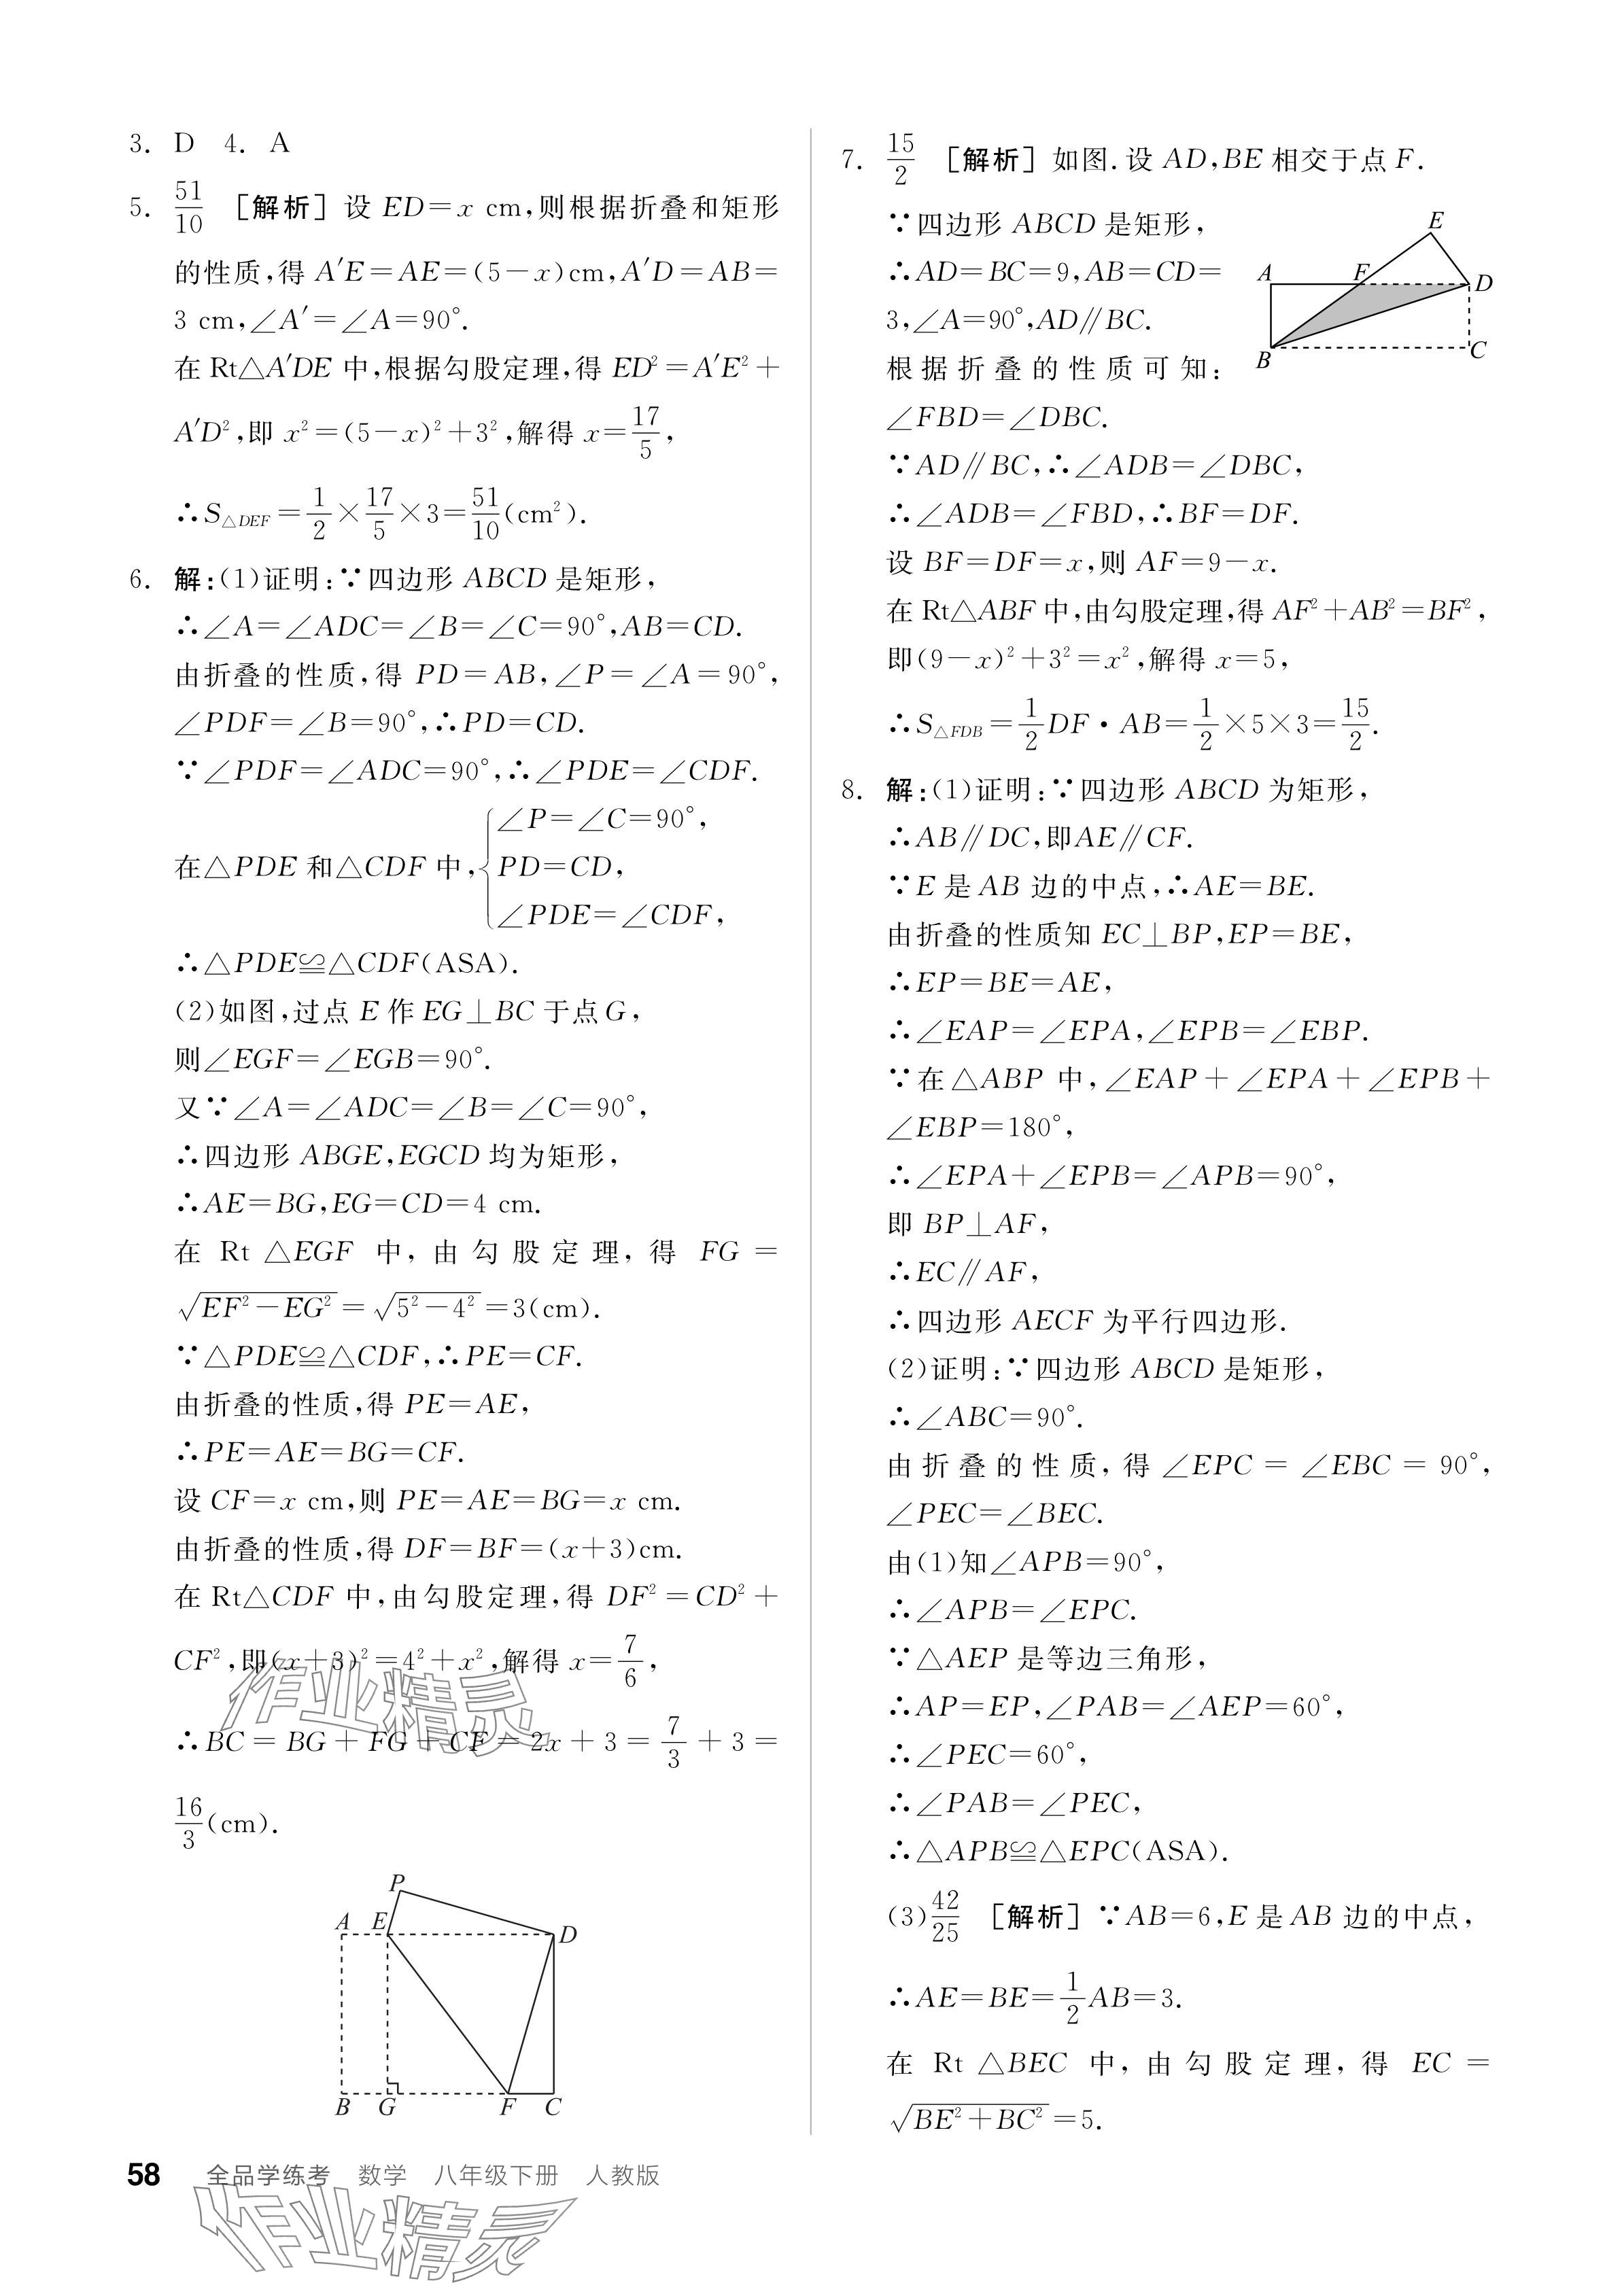 3. D 4. A
5. 51/10 [解析] 设 ED=x cm,则根据折叠和矩形
的性质,得 A′E=AE=(5-x)cm,A′D=AB=
3 cm,∠A′=∠A=90°.
在 Rt△A′DE 中,根据勾股定理,得 ED²=A′E²+
A′D²,即 x²=(5-x)²+3²,解得 x=17/5,
∴S△DEF=1/2×17/5×3=51/10(cm²).
6. 解:(1)证明:∵四边形 ABCD 是矩形,
∴∠A=∠ADC=∠B=∠C=90°,AB=CD.
由折叠的性质,得 PD=AB,∠P=∠A=90°,
∠PDF=∠B=90°,∴PD=CD.
∵∠PDF=∠ADC=90°,∴∠PDE=∠CDF.
在△PDE 和△CDF 中,{∠P=∠C=90°,
PD=CD,
∠PDE=∠CDF,
∴△PDE≌△CDF(ASA).
(2)如图,过点 E 作 EG⊥BC 于点G,
则∠EGF=∠EGB=90°.
又∵∠A=∠ADC=∠B=∠C=90°,
∴四边形 ABGE,EGCD 均为矩形,
∴AE=BG,EG=CD=4 cm.
在 Rt △EGF 中, 由勾股定理, 得 FG =
√(EF²-EG²)=√(5²-4²)=3(cm).
∵△PDE≌△CDF,∴PE=CF.
由折叠的性质,得 PE=AE,
∴PE=AE=BG=CF.
设 CF=x cm,则 PE=AE=BG=x cm.
由折叠的性质,得 DF=BF=(x+3)cm.
在 Rt△CDF 中,由勾股定理,得 DF²=CD²+
CF²,即(x+3)²=4²+x²,解得 x=7/6,
∴BC=BG+FG+CF=2x+3=7/3+3=
16/3(cm).
P
A E D
B G F C
7. 15/2 [解析] 如图.设 AD,BE 相交于点 F.
∵四边形 ABCD 是矩形,
∴AD=BC=9,AB=CD=
3,∠A=90°,AD∥BC.
根据折叠的性质可知:
∠FBD=∠DBC.
E
A F D
B C
∵AD∥BC,∴∠ADB=∠DBC,
∴∠ADB=∠FBD,∴BF=DF.
设 BF=DF=x,则 AF=9-x.
在 Rt△ABF 中,由勾股定理,得 AF²+AB²=BF²,
即(9-x)²+3²=x²,解得 x=5,
∴S△FDB=1/2DF·AB=1/2×5×3=15/2.
8. 解:(1)证明:∵四边形 ABCD 为矩形,
∴AB∥DC,即AE∥CF.
∵E 是 AB 边的中点,∴AE=BE.
由折叠的性质知 EC⊥BP,EP=BE,
∴EP=BE=AE,
∴∠EAP=∠EPA,∠EPB=∠EBP.
∵在△ABP 中,∠EAP+∠EPA+∠EPB+
∠EBP=180°,
∴∠EPA+∠EPB=∠APB=90°,
即 BP⊥AF,
∴EC∥AF,
∴四边形 AECF 为平行四边形.
(2)证明:∵四边形 ABCD 是矩形,
∴∠ABC=90°.
由折叠的性质, 得∠EPC = ∠EBC = 90°,
∠PEC=∠BEC.
由(1)知∠APB=90°,
∴∠APB=∠EPC.
∵△AEP 是等边三角形,
∴AP=EP,∠PAB=∠AEP=60°,
∴∠PEC=60°,
∴∠PAB=∠PEC,
∴△APB≌△EPC(ASA).
(3)42/25 [解析] ∵AB=6,E 是 AB 边的中点,
∴AE=BE=1/2AB=3.
在 Rt △BEC 中, 由勾股定理, 得 EC =
√(BE²+BC²)=5.
作业精灵
58 全品学练考 数学 八年级下册 人教版
作业精灵